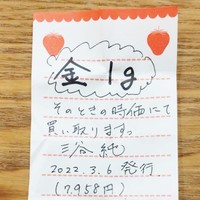 金 1g
そのときの時価にて
買い取ります。
谷 純
2022.3.6 発行
(7,958円)